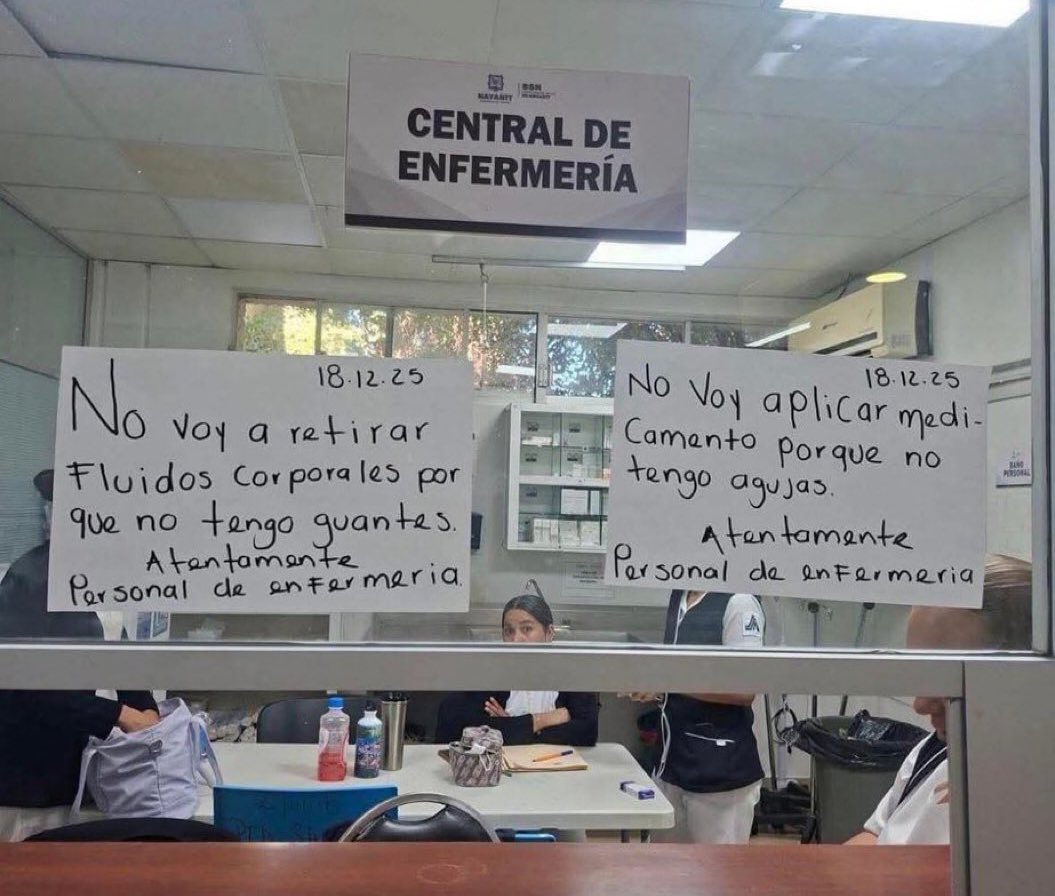 NAYARIT
SSN
CENTRAL DE
ENFERMERÍA
18.12.25
No
voy a retirar
Fluidos corporales por
que no tengo guantes.
Atentamente
Personal de enfermeria.
18.12.25
No Voy aplicar medi-
Camento porque no
tengo agujas.
Atentamente
Personal de enfermeria
BAÑO
PERSONAL